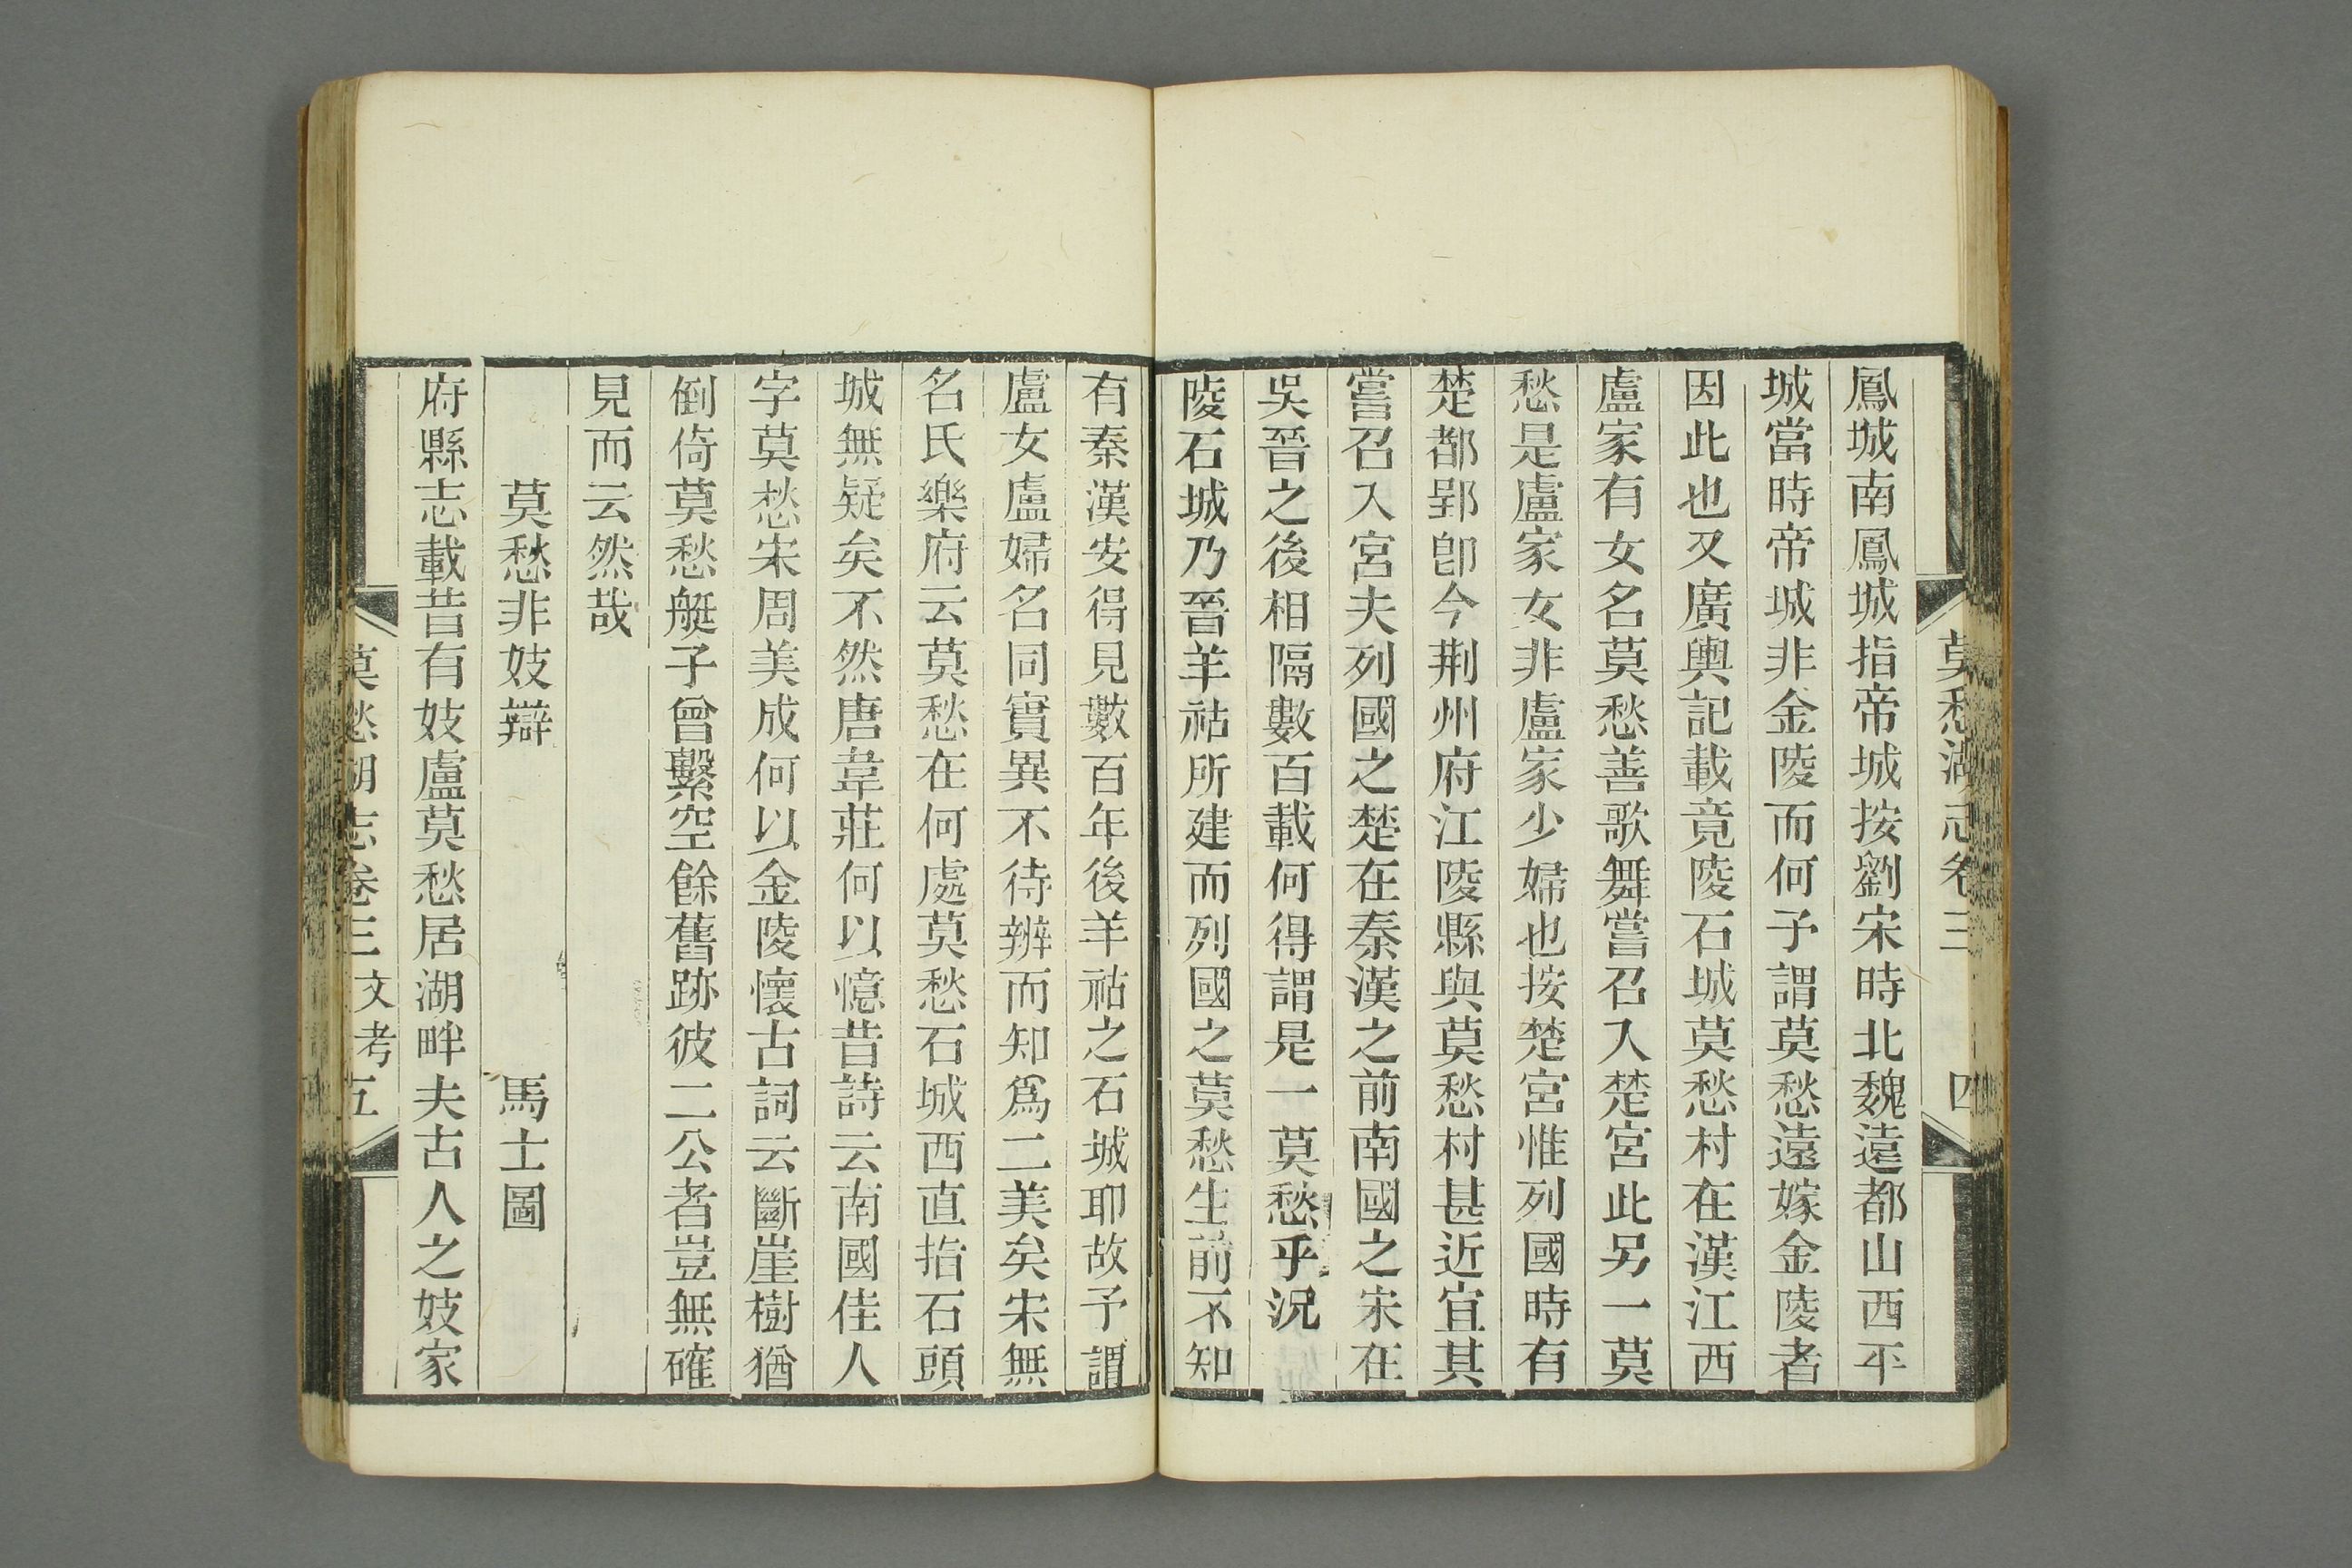 莫愁湖志卷三 四
鳳城南鳳城指帝城按劉宋時北魏遠都山西平
城當時帝城非金陵而何予謂莫愁遠嫁金陵者
因此也又廣輿記載竟陵石城莫愁村在漢江西
盧家有女名莫愁善歌舞嘗召入楚宮此另一莫
愁是盧家女非盧家少婦也按楚宮惟列國時有
楚都郢卽今荆州府江陵縣與莫愁村甚近宜其
嘗召入宮夫列國之楚在秦漢之前南國之宋在
吳晉之後相隔數百載何得謂是一莫愁乎況
陵石城乃晉羊祜所建而列國之莫愁生前不知
有秦漢安得見數百年後羊祜之石城耶故予謂
盧女盧婦名同實異不待辨而知爲二美矣宋無
名氏樂府云莫愁在何處莫愁石城西直指石頭
城無疑矣不然唐韋莊何以憶昔詩云南國佳人
字莫愁宋周美成何以金陵懷古詞云斷崖樹猶
倒倚莫愁艇子曾繫空餘舊跡彼二公者豈無確
見而云然哉
莫愁非妓辯 馬士圖
府縣志載昔有妓盧莫愁居湖畔夫古人之妓家
莫愁湖志卷三 文考 五